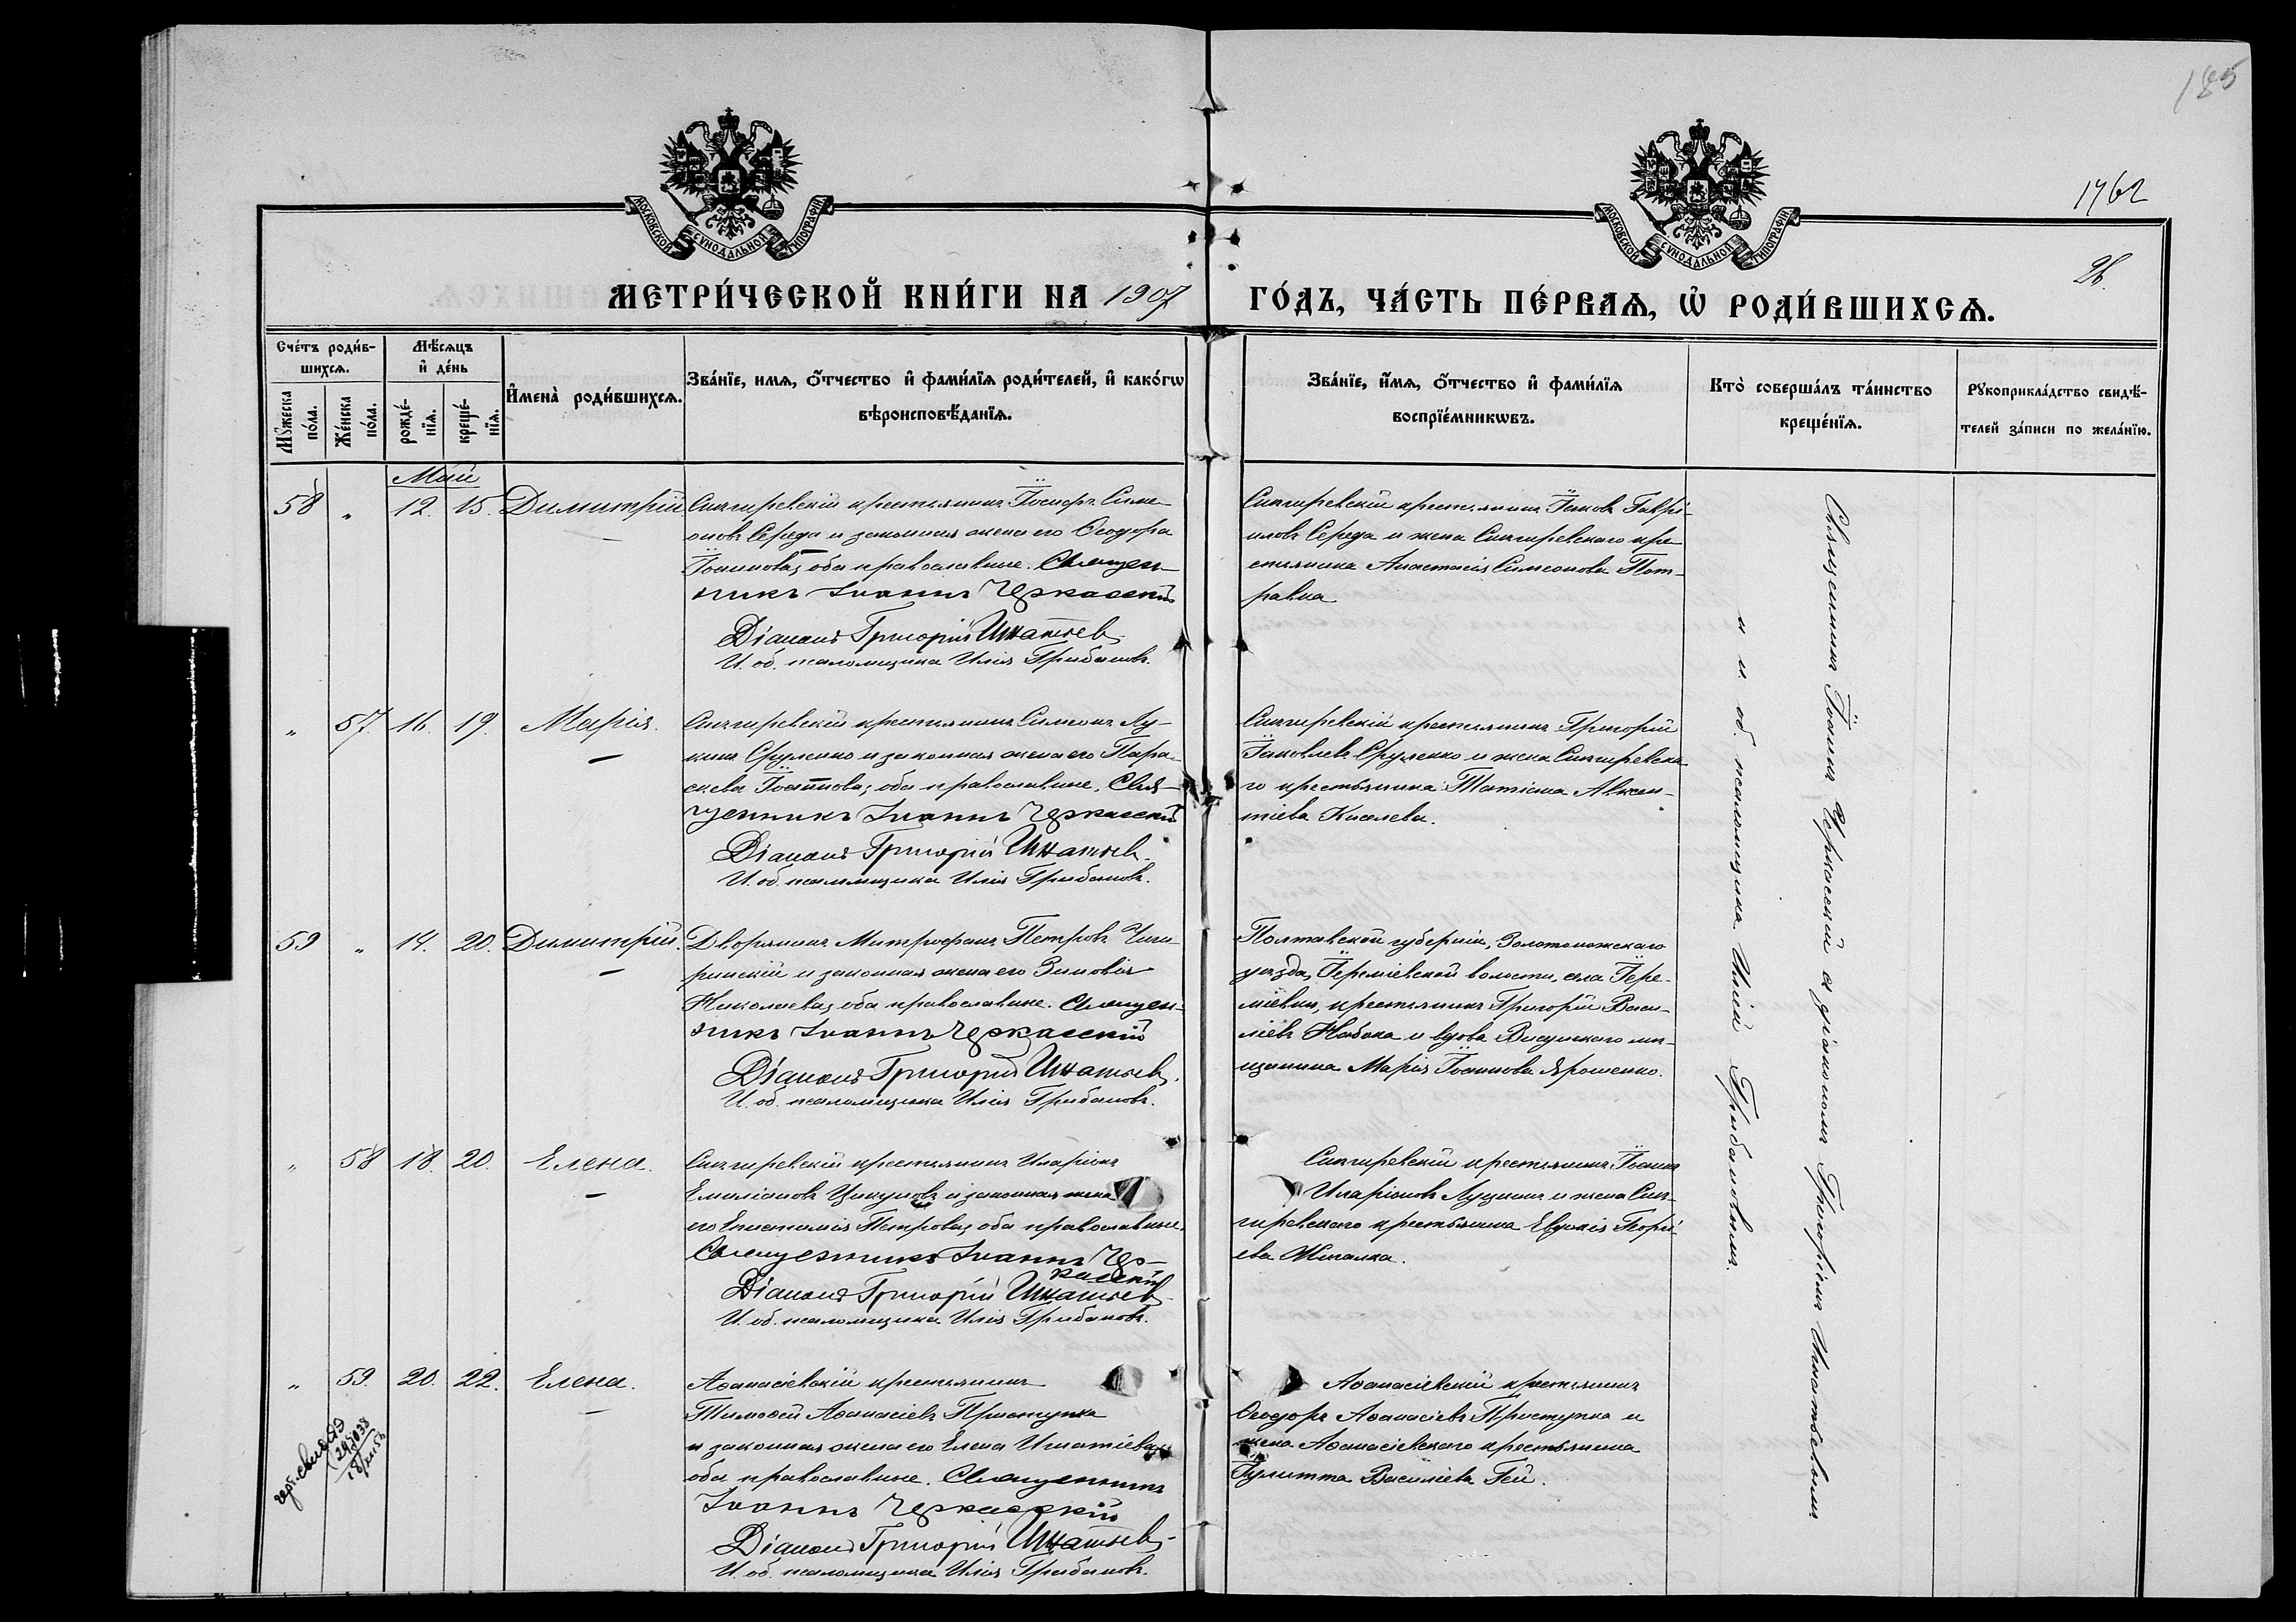 185
1762
26.
МОСКОВСКОЙ СУНОДАЛЬНОЙ ТИПОГРАФІИ
МОСКОВСКОЙ СУНОДАЛЬНОЙ ТИПОГРАФІИ
МЕТРИ́ЧЕСКОЙ КНИ́ГИ НА 1907 ГО́ДЪ, ЧА́СТЬ ПЕ́РВАѦ, Ѡ҆ РОДИ́ВШИХСѦ.
Сче́тъ роди́в-
шихсѧ.
Мꙋжеска по́ла.
Же́нска по́ла.
Мѣ́сѧцъ
и҆ де́нь
рожде́-
нїѧ.
креще́-
нїѧ.
И҆мена̀ роди́вшихсѧ.
Зва́нїе, имѧ, ѻ҆́тчество и҆ фами́лїѧ роди́телей, и҆ како́гѡ
вѣроисповѣ́данїѧ.
Зва́нїе, и҆́мѧ, ѻ҆́тчество и҆ фами́лїѧ
воспрїе́мникѡвъ.
Кто̀ соверша́лъ та́инство
креще́нїѧ.
Рꙋкоприкла́дство свидѣ́-
телей за́писи по жела́нїю.
Май
58 " 12. 15. Димитрій
Снигиревскій крестьянинъ Іосифъ Симе-
оновъ Середа и законная жена его Ѳеодора
Іоаннова, оба православные. Священ-
никъ Іоаннъ Черкасскій
Діаконъ Григорій Игнатьев.
И. об. псаломщика Илія Грибановъ.
Снигиревскій крестьянинъ Іаковъ Гаврі-
иловъ Середа и жена Снигиревскаго кре-
стьянина Анастасія Симеонова Пот-
равка
" 57. 16. 19. Марія.
Снигиревскій крестьянинъ Симеонъ Лу-
кинъ Сруленко и законная жена его Пара-
скева Іоаннова, оба православные. Свя-
щенникъ Іоаннъ Черкасскій
Діаконъ Григорій Игнатьев.
И. об. псаломщика Илія Грибановъ.
Снигиревскій крестьянинъ Григорій
Іаковлевъ Сруленко и жена Снигиревска-
го крестьянина Татіана Авксен-
тіева Киселева.
59 " 14. 20. Димитрій.
Дворянинъ Митрофанъ Петровъ Чиги-
ринскій и законная жена его Зиновія
Николаева, оба православные. Священ-
никъ Іоаннъ Черкасскій
Діаконъ Григорій Игнатьев.
И. об. псаломщика Илія Грибановъ.
Полтавской губерніи, Золотоножскаго
уѣзда, Іереміевской волости, села Іере-
міевки, крестьянинъ Григорій Васи-
ліевъ Набока и вдова Висунскаго мѣ-
щанина Марія Іоаннова Ярошенко.
" 58 18. 20. Елена.
Снигиревскій крестьянинъ Иларіонъ
Емиліановъ и законная жена
его Епистимія Петрова, оба православные.
Священникъ Іоаннъ Чер-
касскій
Діаконъ Григорій Игнатьев.
И. об. псаломщика Илія Грибановъ.
Снигиревскій крестьянинъ Іоаннъ
Иларіоновъ Луцкинъ и жена Сни-
гиревскаго крестьянина Евдокія Георгі-
ева Жигалка.
" 59. 20. 22. Елена.
Аѳанасіевскій крестьянинъ
Тимоѳей Аѳанасіевъ Приступка
и законная жена его Елена Игнатіева,
оба православные. Священникъ
Іоаннъ Черкасскій
Діаконъ Григорій Игнатьев.
И. об. псаломщика Илія Грибановъ.
Аѳанасіевскій крестьянинъ
Ѳеодоръ Аѳанасіевъ Приступка и
жена Аѳанасіевскаго крестьянина
Іулитта Василіева Гей.
Священникъ Іоаннъ Черкасскій съ діакономъ Григоріемъ Игнатьевымъ
и и. об. псаломщика Иліей Грибановымъ.